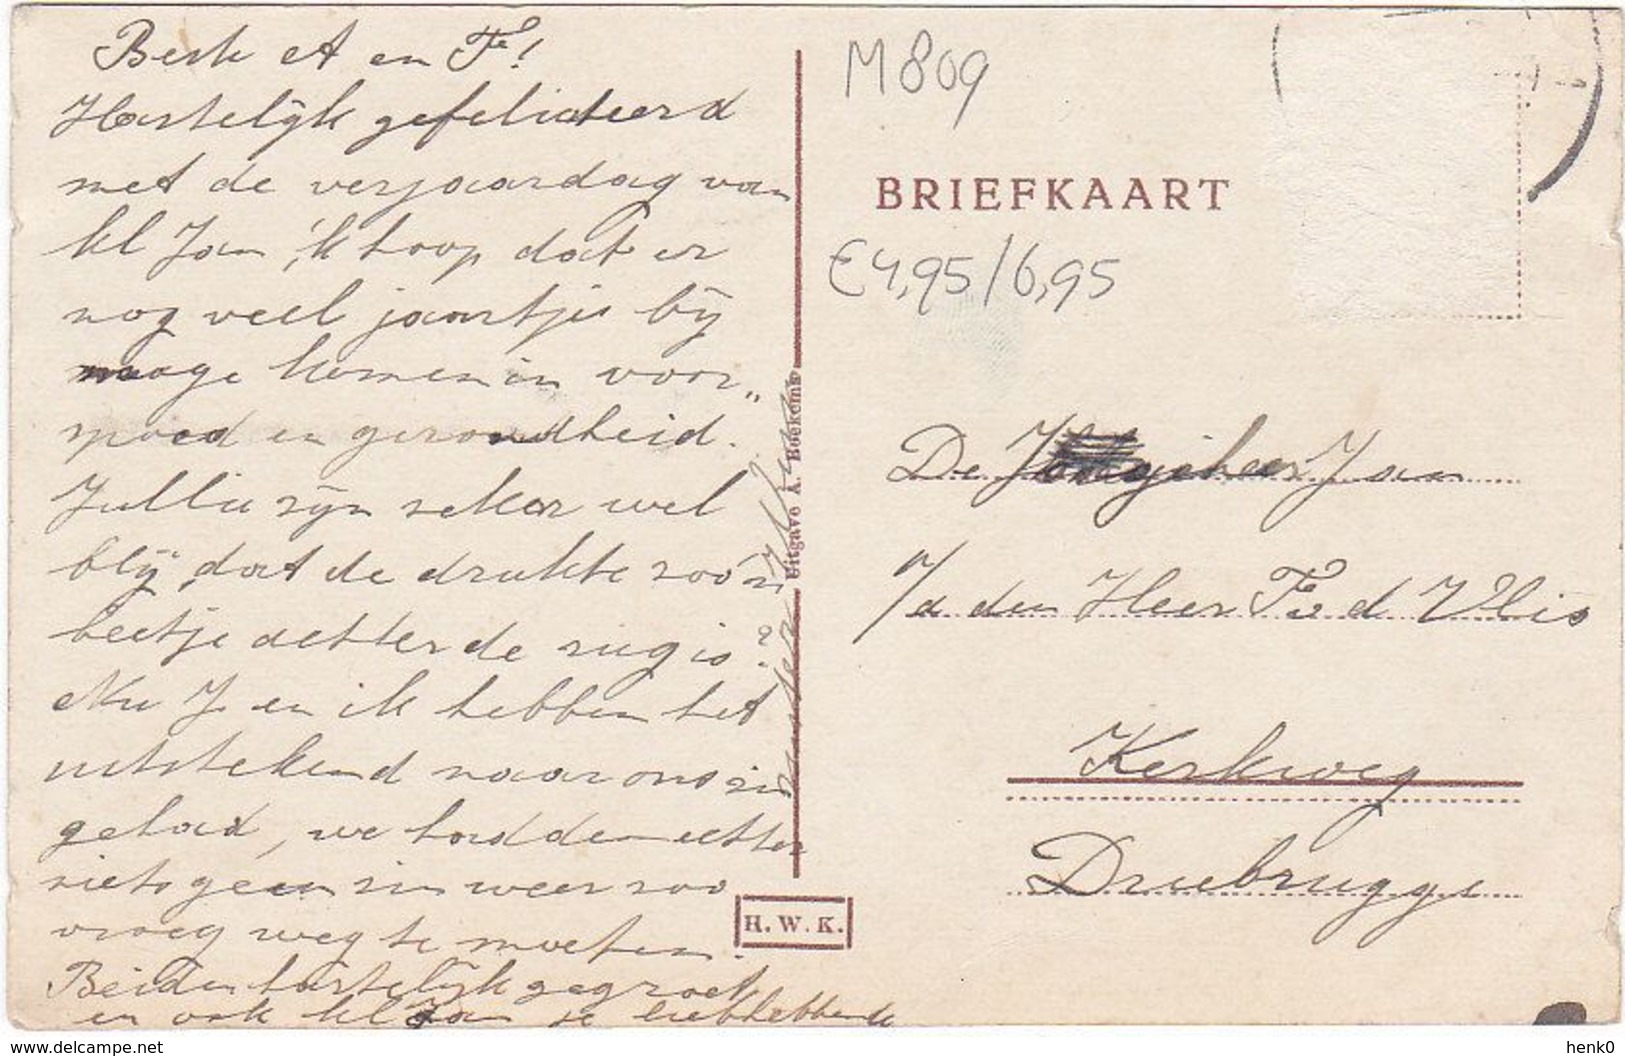 Beste A en F!
Hartelijk gefeliciteerd
met de verjaardag van
kl Jan, 'k hoop dat er
nog veel jaartjes bij
moge komen in voor„
spoed en gezondheid.
Jullie zijn zeker wel
blij, dat de drukte zoo'n
beetje achter de rug is?
Nu J. en ik hebben het
uitstekend naar ons zin
gehad, we hadden echter
niets geen zin weer zoo
vroeg weg te moeten.
Beiden hartelijk gegroet
en ook kl Jan je liefhebbende
Uitgave A. Boekema
H. W. K.
M809
BRIEFKAART
€4,95/6,95
De Jongeheer Jan
p/a den Heer F. v d Vlis
Kerkweg
Driebrugge
www.delcampe.net
henk0